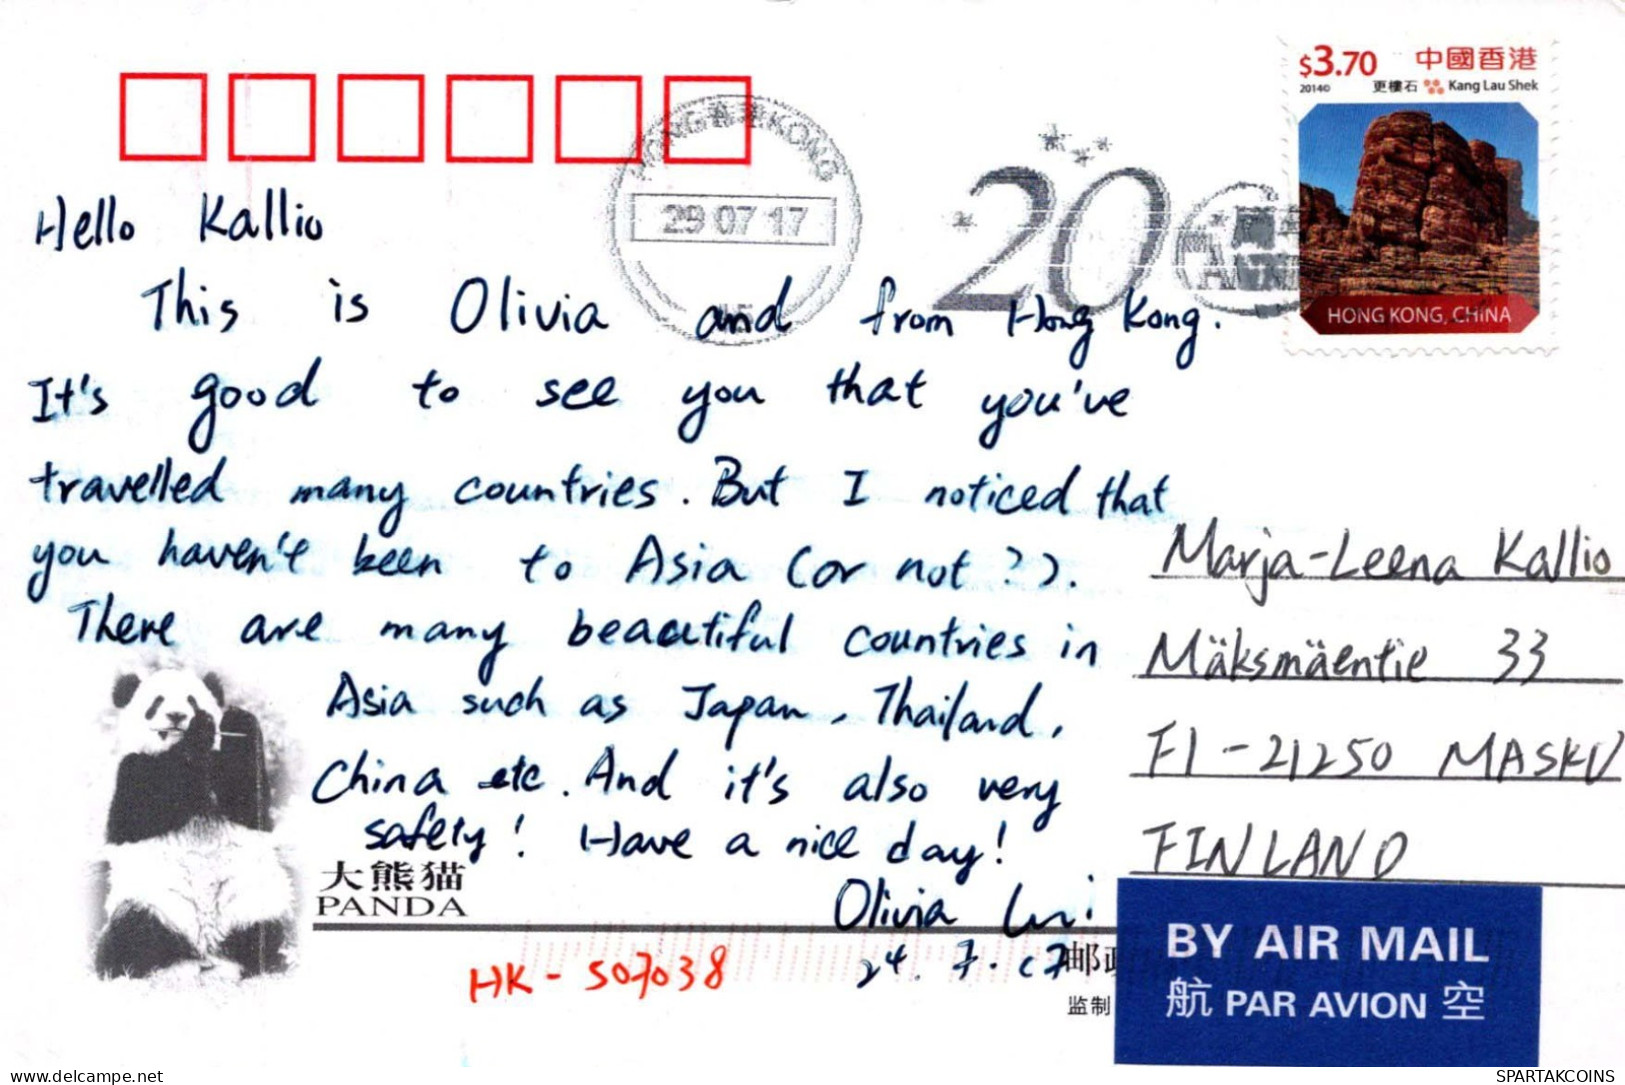 $3.70 中國香港
2014© 更樓石 Kang Lau Shek
HONG KONG, CHINA
HONG KONG
29 07 17
20
Hello Kallio
This is Olivia and from Hong Kong.
It's good to see you that you've
travelled many countries. But I noticed that
you haven't been to Asia (or not?).
There are many beautiful countries in
Asia such as Japan, Thailand,
China etc. And it's also very
safety! Have a nice day!
Olivia
24.7.17
大熊猫
PANDA
HK-507038
Marja-Leena Kallio
Mäksmäentie 33
FI-21250 MASKU
FINLAND
邮政
监制
BY AIR MAIL
航 PAR AVION 空
liveinternetmarket.com
SPARTAKCOINS